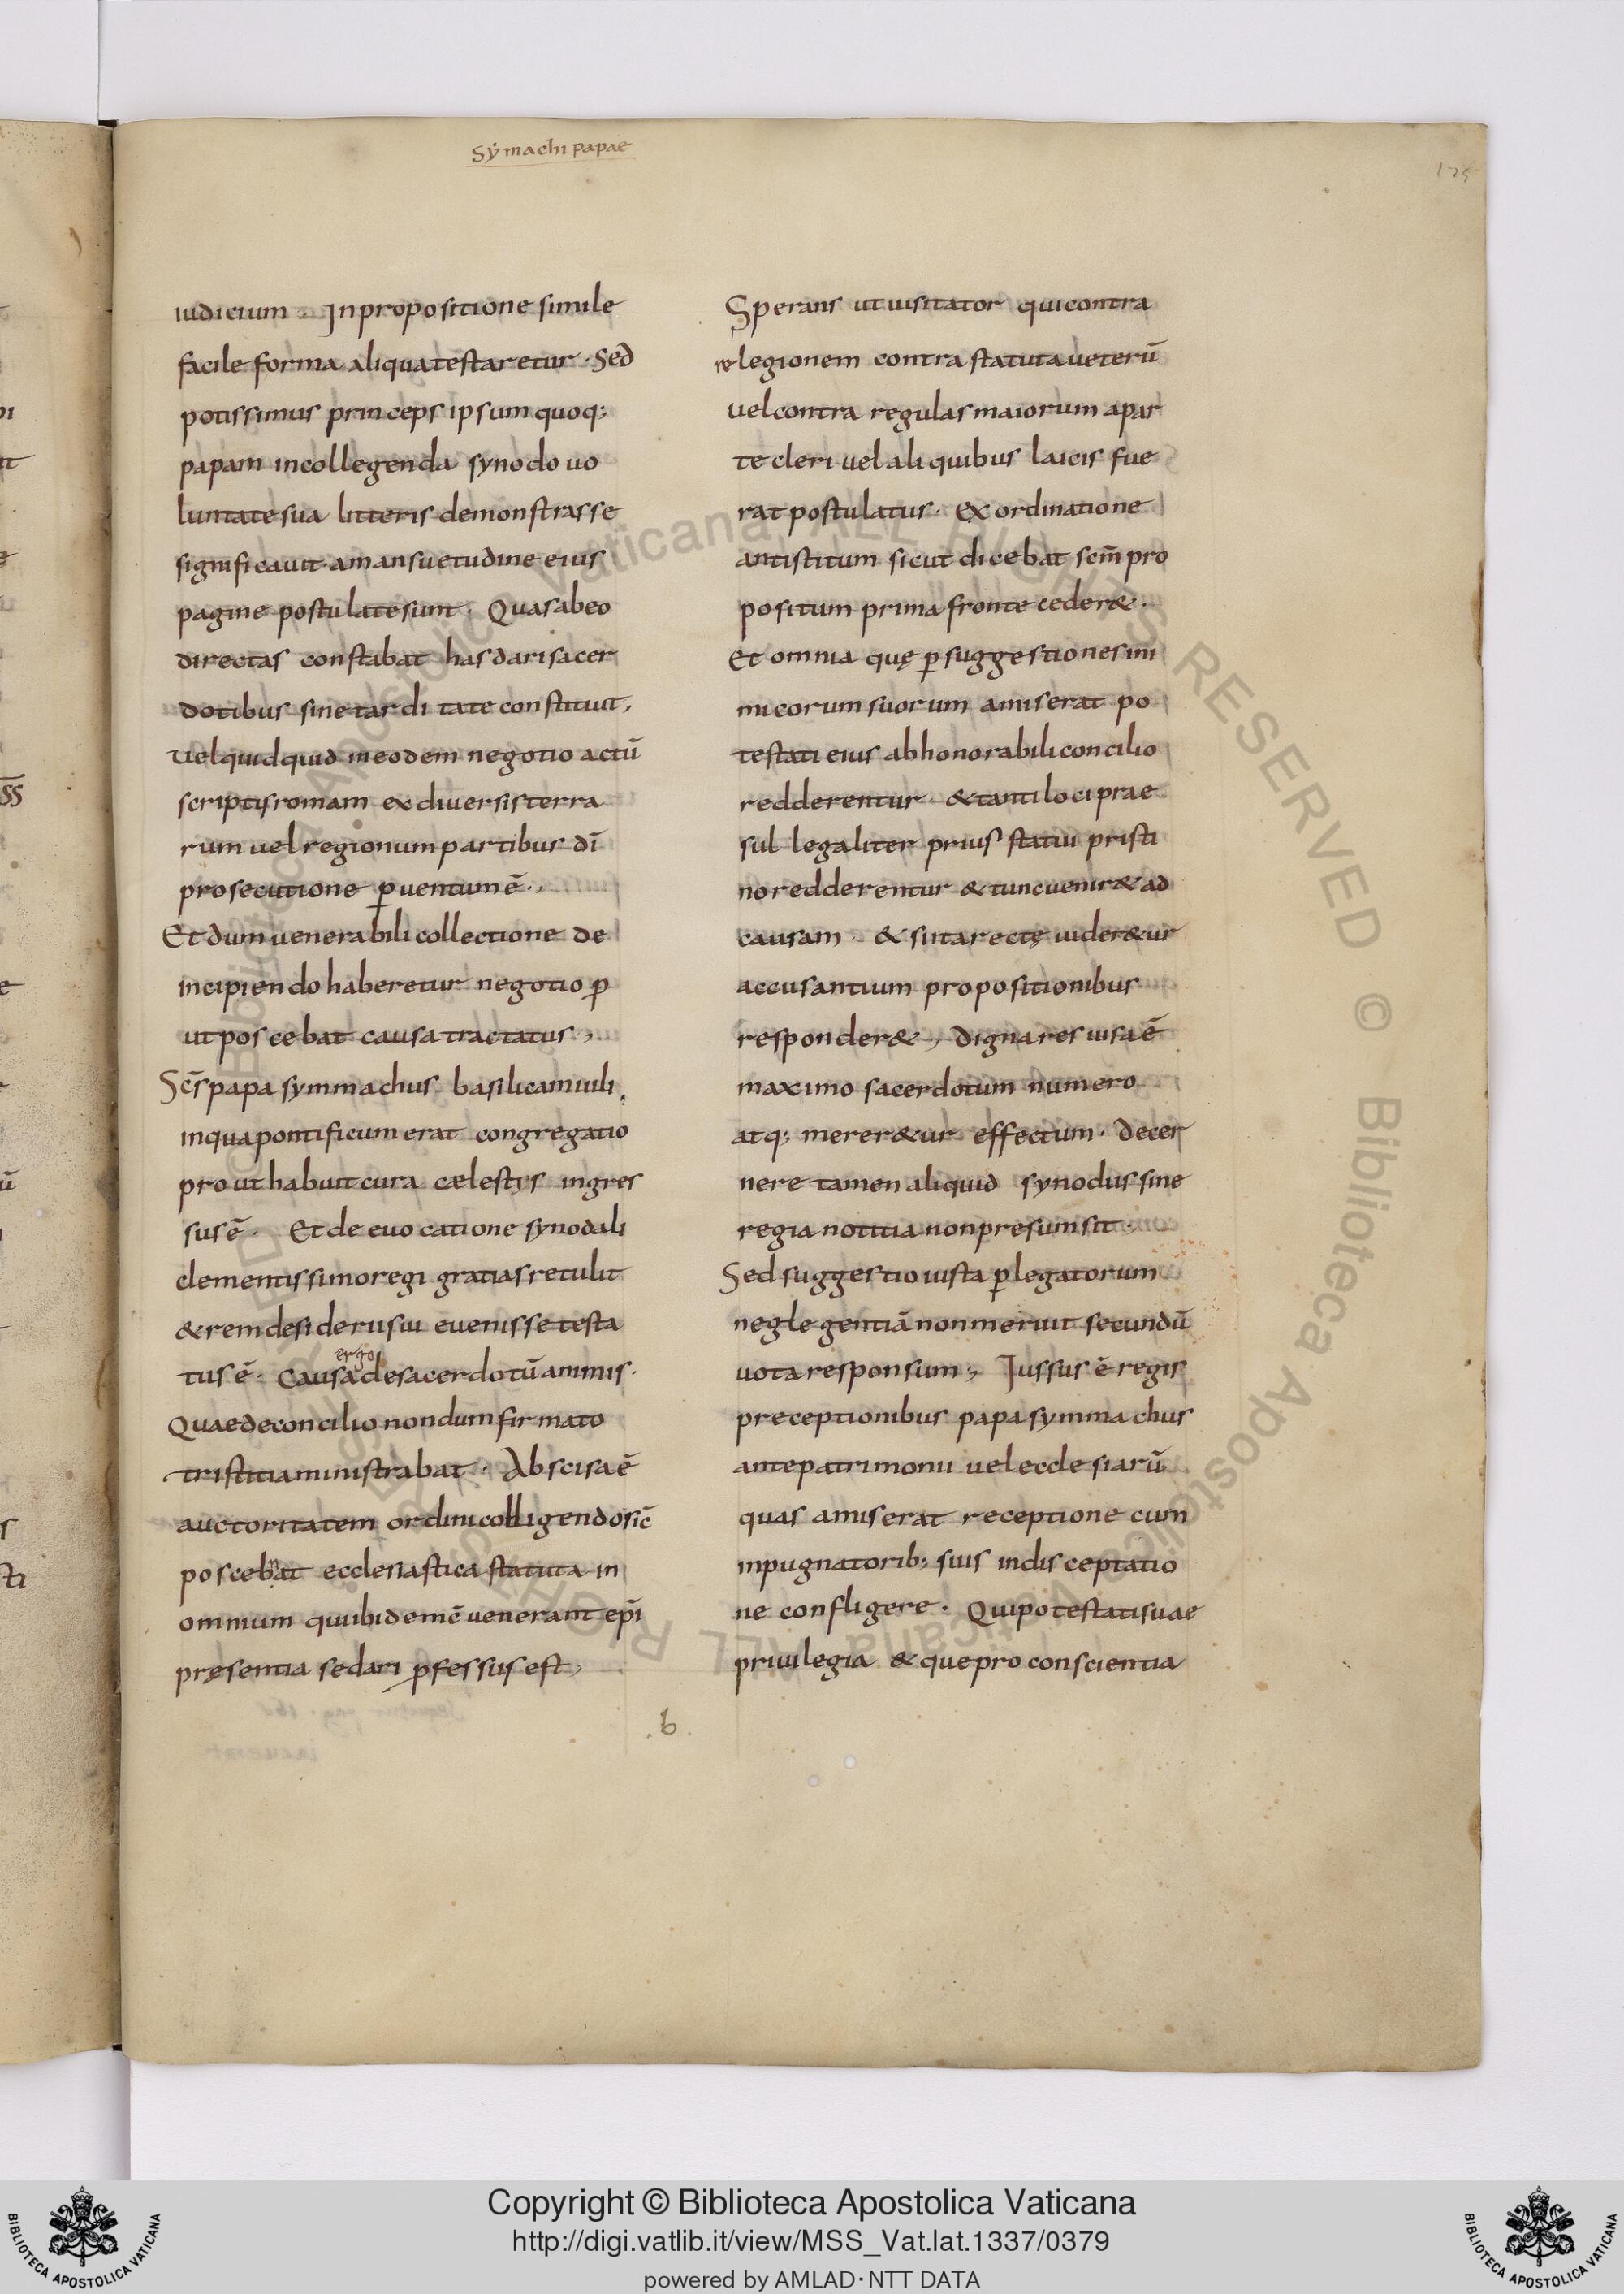 Sẏmachi papae
175
iudicium. In propositione simile
facile forma aliqua testaretur. Sed
potissimus princeps ipsum quoq;
papam in collegenda synodo uo
luntate sua litteris demonstrasse
significauit. a mansuetudine eius
pagine postulate sunt. Quas ab eo
directas constabat has dari sacer
dotibus sine tarditate constituit,
uel quidquid in eodem negotio actū
scriptis romam ex diuersis terra
rum uel regionum partibus dī
prosecutione ꝑuentum ē.,
Et dum uenerabili collectione de
incipiendo haberetur negotio ꝑ
ut poscebat causa tractatus.,
Scs̄ papa symmachus basilicam iuli.
in qua pontificum erat congregatio
prout habuit cura cælestis ingres
sus ē. Et de euocatione synodali
clementissimo regi gratias retulit
& rem desiderii sui euenisse testa
tus ē. Causa ergo de sacerdotū animis.
Quae de concilio nondum firmato
tristitia ministrabat. Abscisa ē
auctoritatem ordini colligendo sic̄
poscebant ecclesiastica statuta in
omnium qui ibidem c̄uenerant ep̄i
pręsentia sedari ꝓfessus est,
Sperans ut uisitator qui contra
relegionem contra statuta ueterū
uel contra regulas maiorum a par
te cleri uel aliquibus laicis fue
rat postulatus. Ex ordinatione
antistitum sicut dicebat scm̄ pro
positum prima fronte ceder&.
Et omnia quę ꝑ suggestiones ini
micorum suorum amiserat po
testati eius ab honorabili concilio
redderentur. & tanti loci prae
sul legaliter prius statui pristi
no redderentur & tunc uenir& ad
causam. & si ita recte uider&ur
accusantium propositionibus
responder&., Digna res uisa ē
maximo sacerdotum numero
atq; merer&ur effectum. Decer
nere tamen aliquid synodus sine
regia notitia non presumsit.
Sed suggestio iusta ꝑ legatorum
neglegentiā non meruit secundū
uota responsum., Iussus ē regis
preceptionibus papa symmachus
ante patrimonii uel ecclesiarū
quas amiserat receptione cum
inpugnatorib; suis in disceptatio
ne confligere. Qui potestati suae
priuilegia & que pro conscientia
.b.
Copyright © Biblioteca Apostolica Vaticana
http://digi.vatlib.it/view/MSS_Vat.lat.1337/0379
powered by AMLAD·NTT DATA
BIBLIOTECA APOSTOLICA VATICANA
BIBLIOTECA APOSTOLICA VATICANA